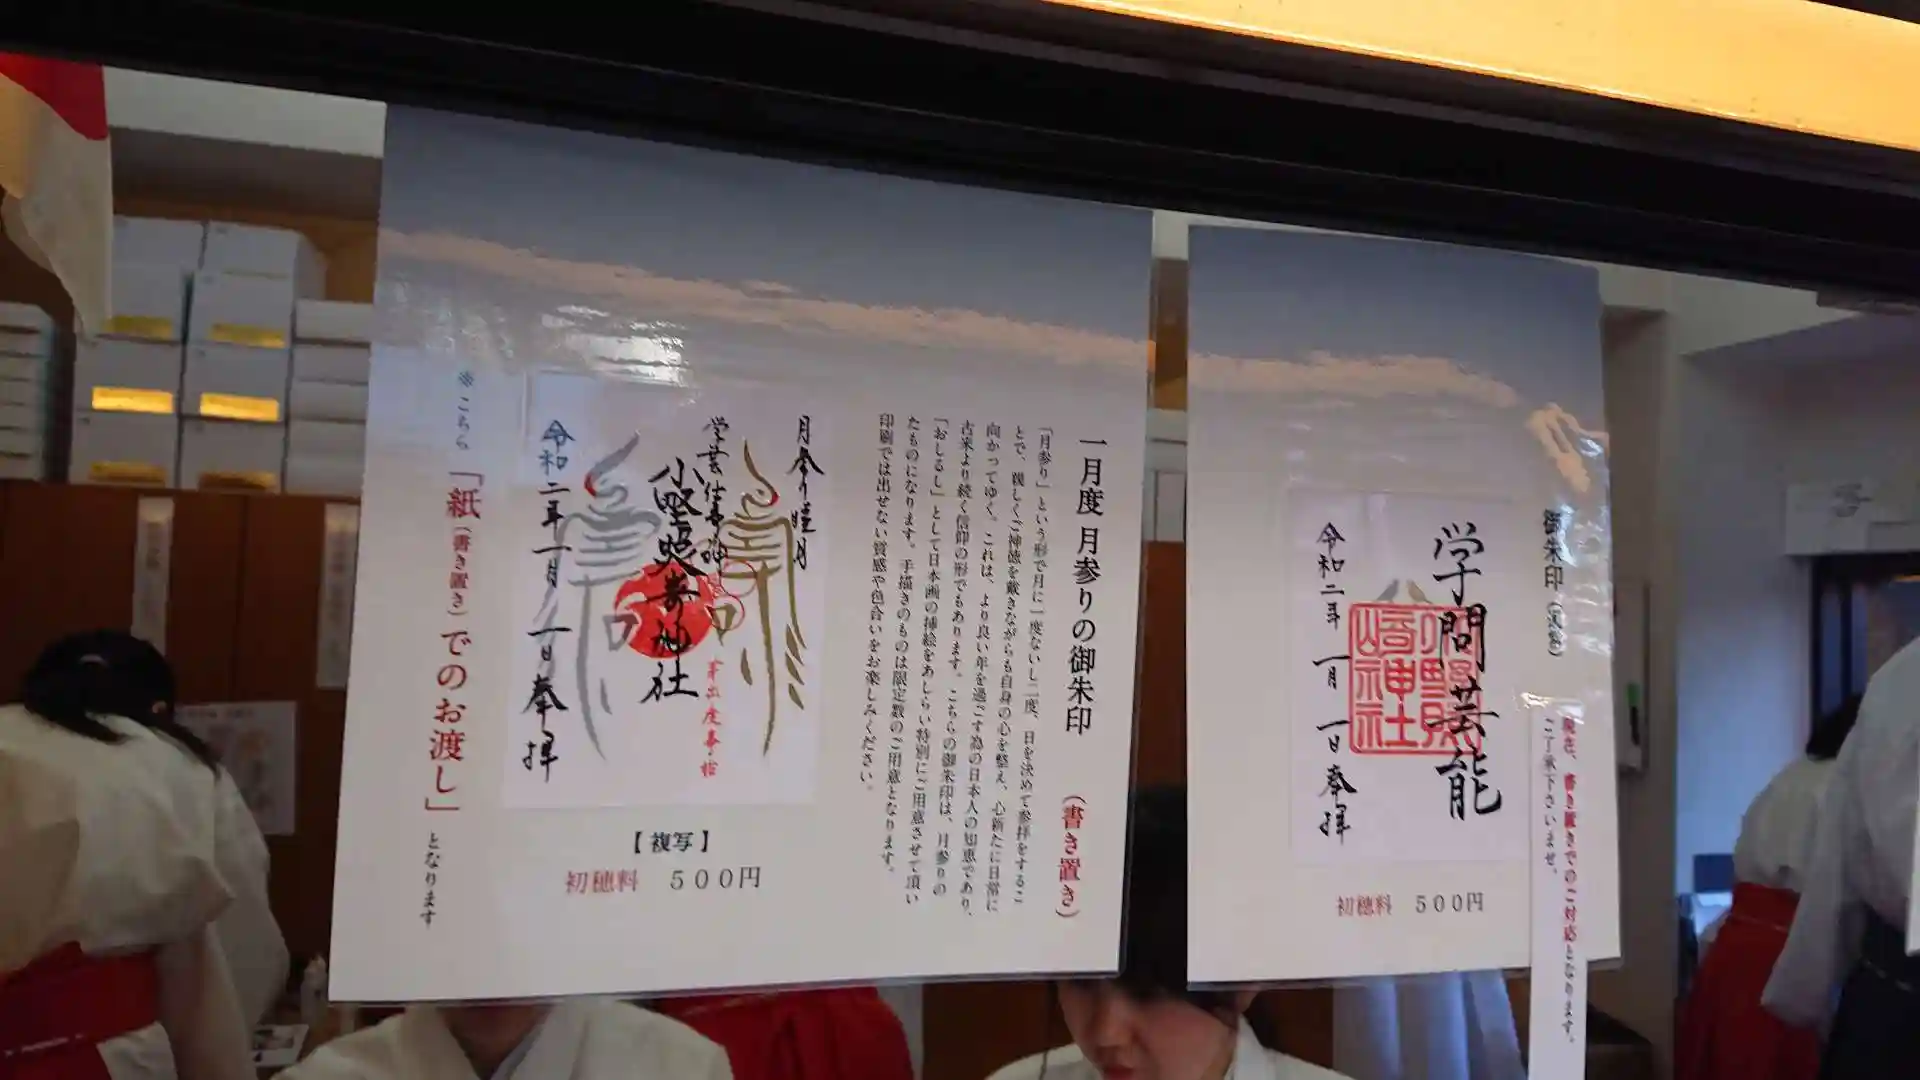 御朱印
現在、書き置きでのご対応となります。
ご了承下さいませ。
学問芸能
小野照崎神社
令和二年 一月 一日 奉拝
初穂料 500円
一月度 月参りの御朱印 (書き置き)
「月参り」という形で月に一度ないし二度、日を決めて参拝をするこ
とで、親しくご神徳を戴きながらも自身の心を整え、心新たに日常に
向かってゆく。これは、より良い年を過ごす為の日本人の知恵であり、
古来より続く信仰の形でもあります。こちらの御朱印は、月参りの
「おしるし」として日本画の挿絵をあしらい特別にご用意させて頂い
たものになります。手描きのものは限定数のご用意となります。
印刷では出せない質感や色合いをお楽しみください。
月参り睦月
小野照崎神社
令和二年 一月 一日 奉拝
【複写】
初穂料 500円
※こちら「紙(書き置き)でのお渡し」となります